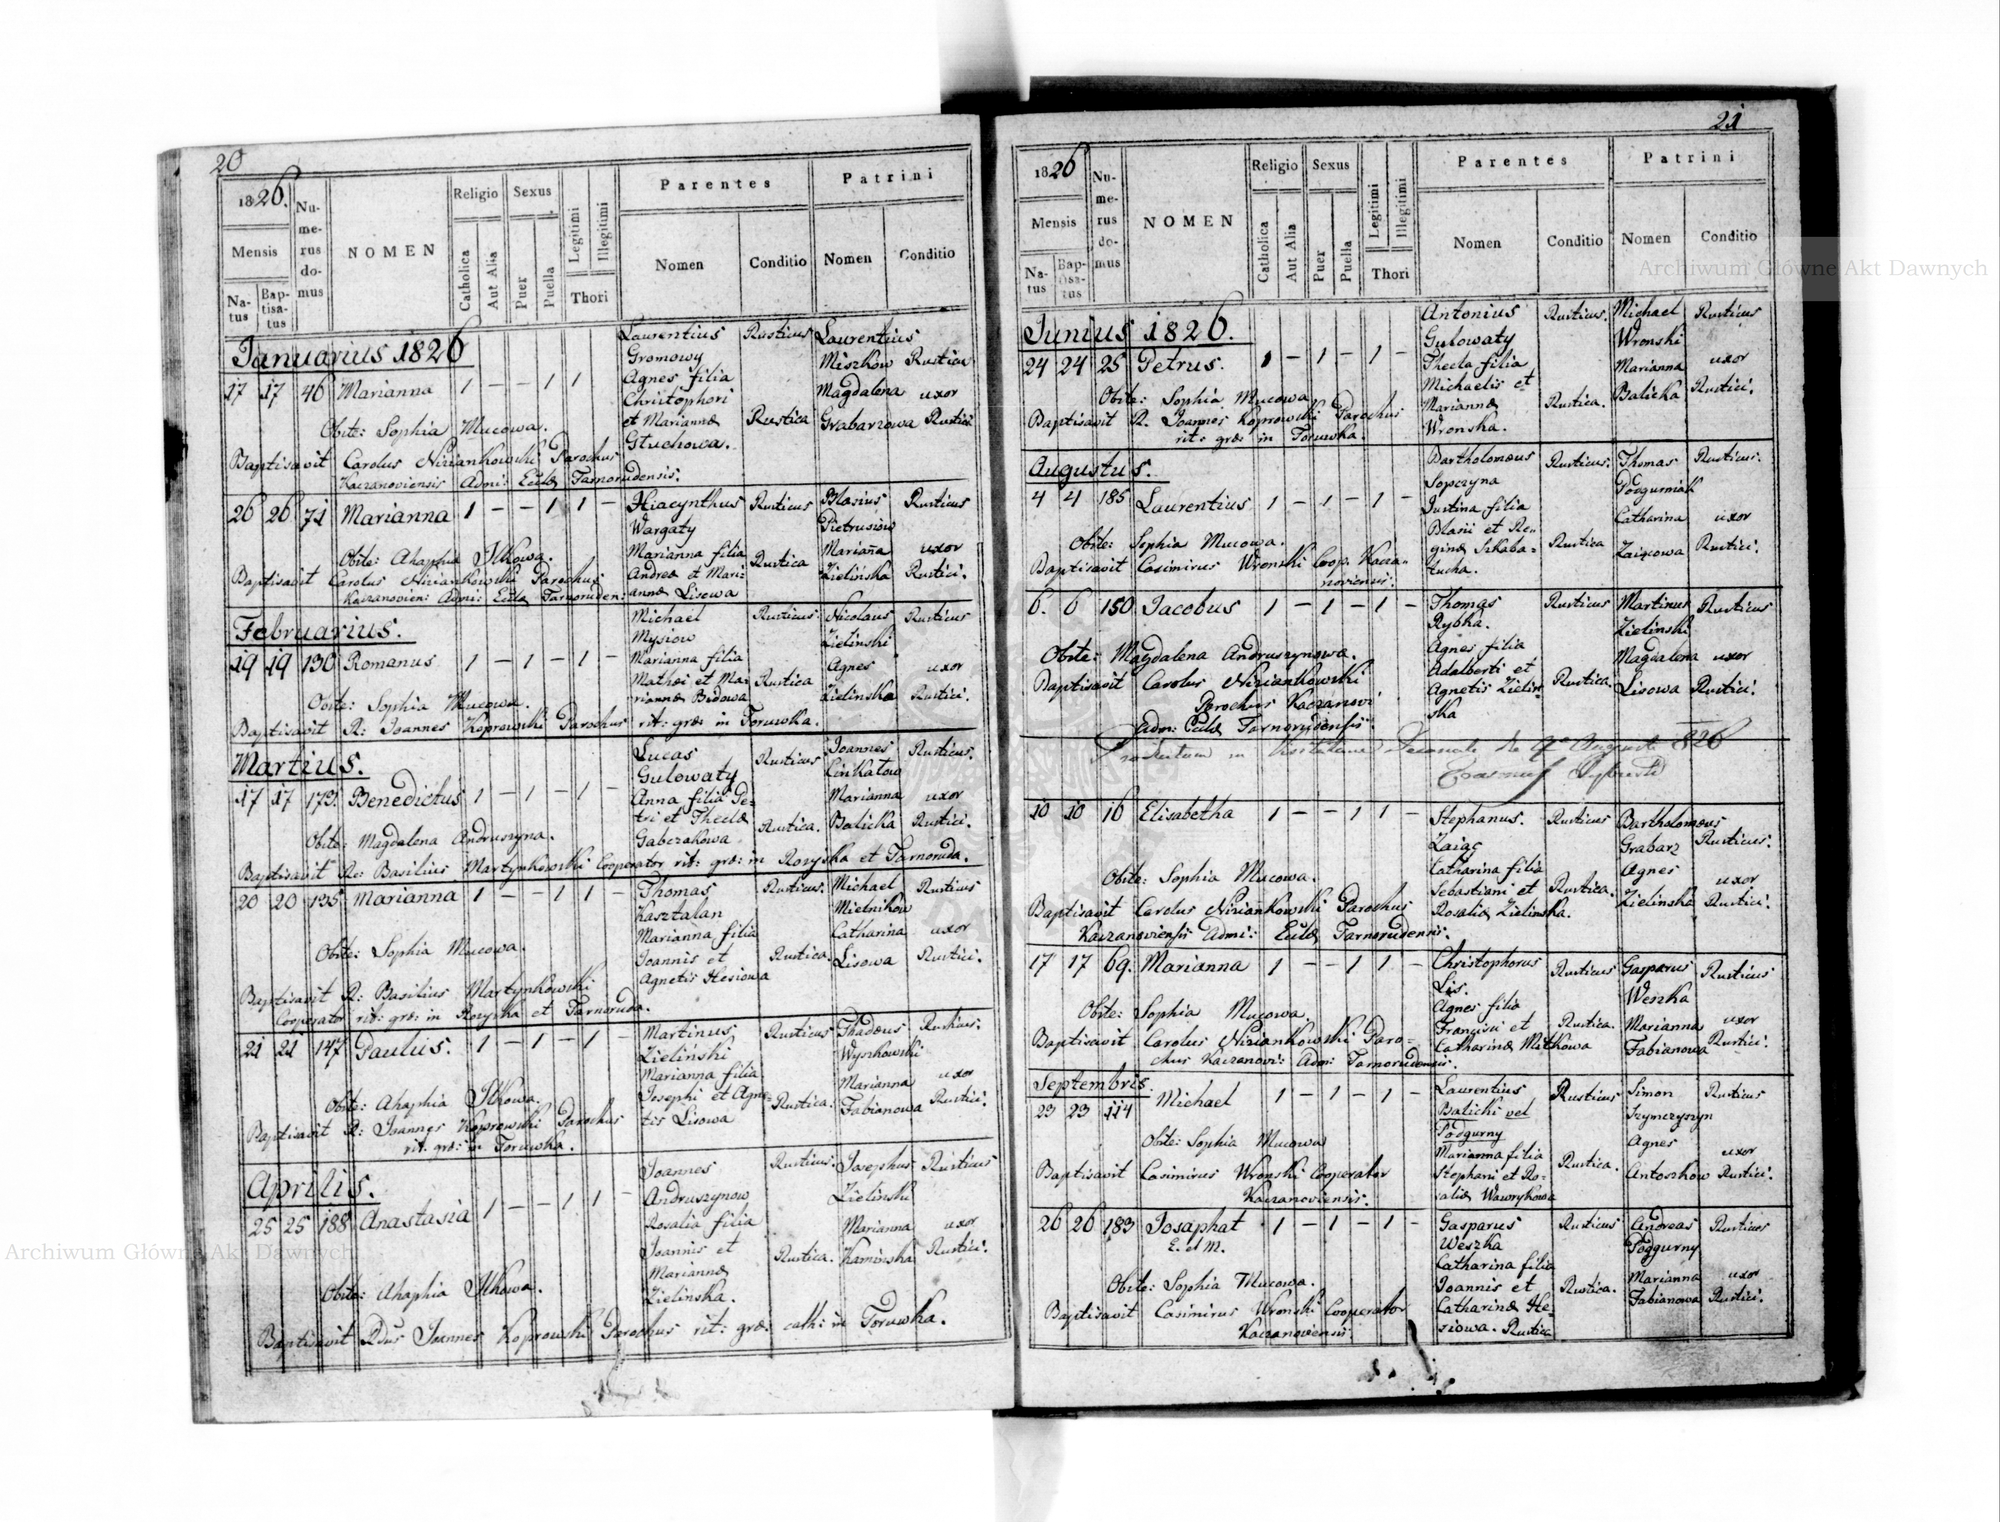 20
1826.
Mensis
Natus
Baptisatus
Numerus domus
NOMEN
Religio
Catholica
Aut Alia
Sexus
Puer
Puella
Legitimi
Illegitimi
Thori
Parentes
Nomen
Conditio
Patrini
Nomen
Conditio
Januarius 1826
17 17 46 Marianna 1 – – 1 1
Laurentius
Gromowy
Agnes filia
Christophori
et Mariannæ
Gluchowa.
Rusticus
Rustica
Laurentius
Miszkow Rustica
Magdalena uxor
Grabarzowa Rustici
Obste: Sophia Mucowa.
Baptisavit Carolus Niziankowski Parochus
Kaczanoviensis Admi: Eccłæ Tarnorudensis.
26 26 71 Marianna 1 – – 1 1 –
Hiacynthus
Wargaty
Marianna filia
Andreæ et Mari-
annæ Lisowa
Rusticus
Rustica
Blasius Rusticus
Pietrusiow
Mariana uxor
Zielińska Rustici.
Obste: Ahaphia Ilkowa.
Baptisavit Carolus Niziankowski Parochus
Kaczanovien: Admi: Eccłæ Tarnoruden:
Februarius.
19 19 130 Romanus 1 – 1 – 1 –
Michael
Mysiow
Marianna filia
Mathei et Ma-
riannæ Bidowa
Rusticus
Rustica
Nicolaus Rusticus
Zielinski
Agnes uxor
Zielinska Rustici.
Obste: Sophia Mucowa.
Baptisavit R: Joannes Koprowski Parochus rit: græ: in Toruwka.
Martius.
17 17 173. Benedictus 1 – 1 – 1 –
Lucas
Gulowaty
Anna filia Pe-
tri et Theclæ
Gabczakowa
Rusticus
Rustica.
Joannes Rusticus.
Cirikatow
Marianna uxor
Balicka Rustici.
Obste: Magdalena Andruszyna.
Baptisavit R: Basilius Martynkowski Cooperator rit: græ: in Rozyska et Tarnoruda.
20 20 125 Marianna 1 – – 1 1 –
Thomas
Kasztalan
Marianna filia
Joannis et
Agnetis Hesiowa
Rusticus.
Rustica.
Michael Rusticus
Mietnikow
Catharina uxor
Lisowa Rustici.
Obste: Sophia Mucowa.
Baptisavit R: Basilius Martynkowski
Cooperator rit: græ: in Rozyska et Tarnoruda.
21 21 147 Paulus. 1 – 1 – 1 –
Martinus
Zielinski
Marianna filia
Josephi et Agne-
tis Lisowa
Rusticus
Rustica.
Thadeus Rusticus.
Wyszkowski
Marianna uxor
Fabianowa Rustici.
Obste: Ahaphia Ilkowa.
Baptisavit R: Joannes Koprowski Parochus
rit: græ: in Toruwka.
Aprilis.
25 25 188 Anastasia 1 – – 1 1 –
Joannes
Andruszynow
Rosalia filia
Joannis et
Mariannæ
Zielinska.
Rusticus.
Rustica.
Josephus Rusticus
Zielinski
Marianna uxor
Kaminska Rustici.
Obste: Ahaphia Ilkowa.
Baptisavit Rdus Joannes Koprowski Parochus rit: græ: cath: in Toruwka.
21
1826
Mensis
Natus
Baptisatus
Numerus domus
NOMEN
Religio
Catholica
Aut Alia
Sexus
Puer
Puella
Legitimi
Illegitimi
Thori
Parentes
Nomen
Conditio
Patrini
Nomen
Conditio
Junius 1826.
24 24 25 Petrus. 1 – 1 – 1 –
Antonius
Gulowaty
Thecla filia
Michaelis et
Mariannæ
Wronska.
Rusticus.
Rustica.
Michael Rusticus
Wronski
Marianna uxor
Balicka Rustici.
Obste: Sophia Mucowa
Baptisavit R. Joannes Koprowski Parochus
rit: græ: in Toruwka.
Augustus.
4 4 185 Laurentius 1 – 1 – 1 –
Bartholomeus
Sopczyna
Justina filia
Blasii et Re-
ginæ Szkaba-
tucha.
Rusticus.
Rustica
Thomas Rusticus.
Podgurniak
Catharina uxor
Zaiącowa Rustici.
Obste: Sophia Mucowa.
Baptisavit Casimirus Wronski Coop. Kacza-
noviensis.
6. 6 150 Jacobus 1 – 1 – 1 –
Thomas
Rybka.
Agnes filia
Adalberti et
Agnetis Zielin-
ska
Rusticus
Rustica.
Martinus Rusticus
Zielinski
Magdalena uxor
Lisowa Rustici.
Obste: Magdalena Andruszynowa.
Baptisavit Carolus Niziankowski
Parochus Kaczanovi
Adm: Eccłæ Tarnorudensis.
Productum in Visitatione Decanali die 9a Augusti 1826
10 10 16 Elisabetha 1 – – 1 1 –
Stephanus.
Zaiąc
Catharina filia
Sebastiani et
Rosaliæ Zielinska.
Rusticus
Rustica.
Bartholomeus
Grabarz Rusticus.
Agnes uxor
Zielinska Rustici.
Obste: Sophia Mucowa.
Baptisavit Carolus Niziankowski Parochus
Kaczanoviensis Admi: Eccłæ Tarnorudensis.
17 17 69. Marianna 1 – – 1 1 –
Christophorus
Lis.
Agnes filia
Francisci et
Catharinæ Mitkowa
Rusticus
Rustica.
Gasparus Rusticus
Weszka
Marianna uxor
Fabianowa Rustici.
Obste: Sophia Mucowa.
Baptisavit Carolus Niziankowski Paro-
chus Kaczanovi: Adm: Tarnorudensis.
Septembris.
23 23 114 Michael 1 – 1 – 1 –
Laurentius
Balicki vel
Podgurny
Marianna filia
Stephani et Ro-
saliæ Wawrykowa
Rusticus
Rustica.
Simon Rusticus
Szymczyszyn
Agnes uxor
Antoszkow Rustici.
Obste: Sophia Mucowa
Baptisavit Casimirus Wronski Cooperator
Kaczanoviensis.
26 26 183 Josaphat 1 – 1 – 1 –
E. et M.
Gasparus
Weszka
Catharina filia
Joannis et
Catharinæ He-
siowa. Rustica
Rusticus
Rustica.
Andreas Rusticus
Podgurny
Marianna uxor
Fabianowa Rustici.
Obste: Sophia Mucowa.
Baptisavit Casimirus Wronski Cooperator
Kaczanoviensis
Archiwum Główne Akt Dawnych
Archiwum Główne Akt Dawnych